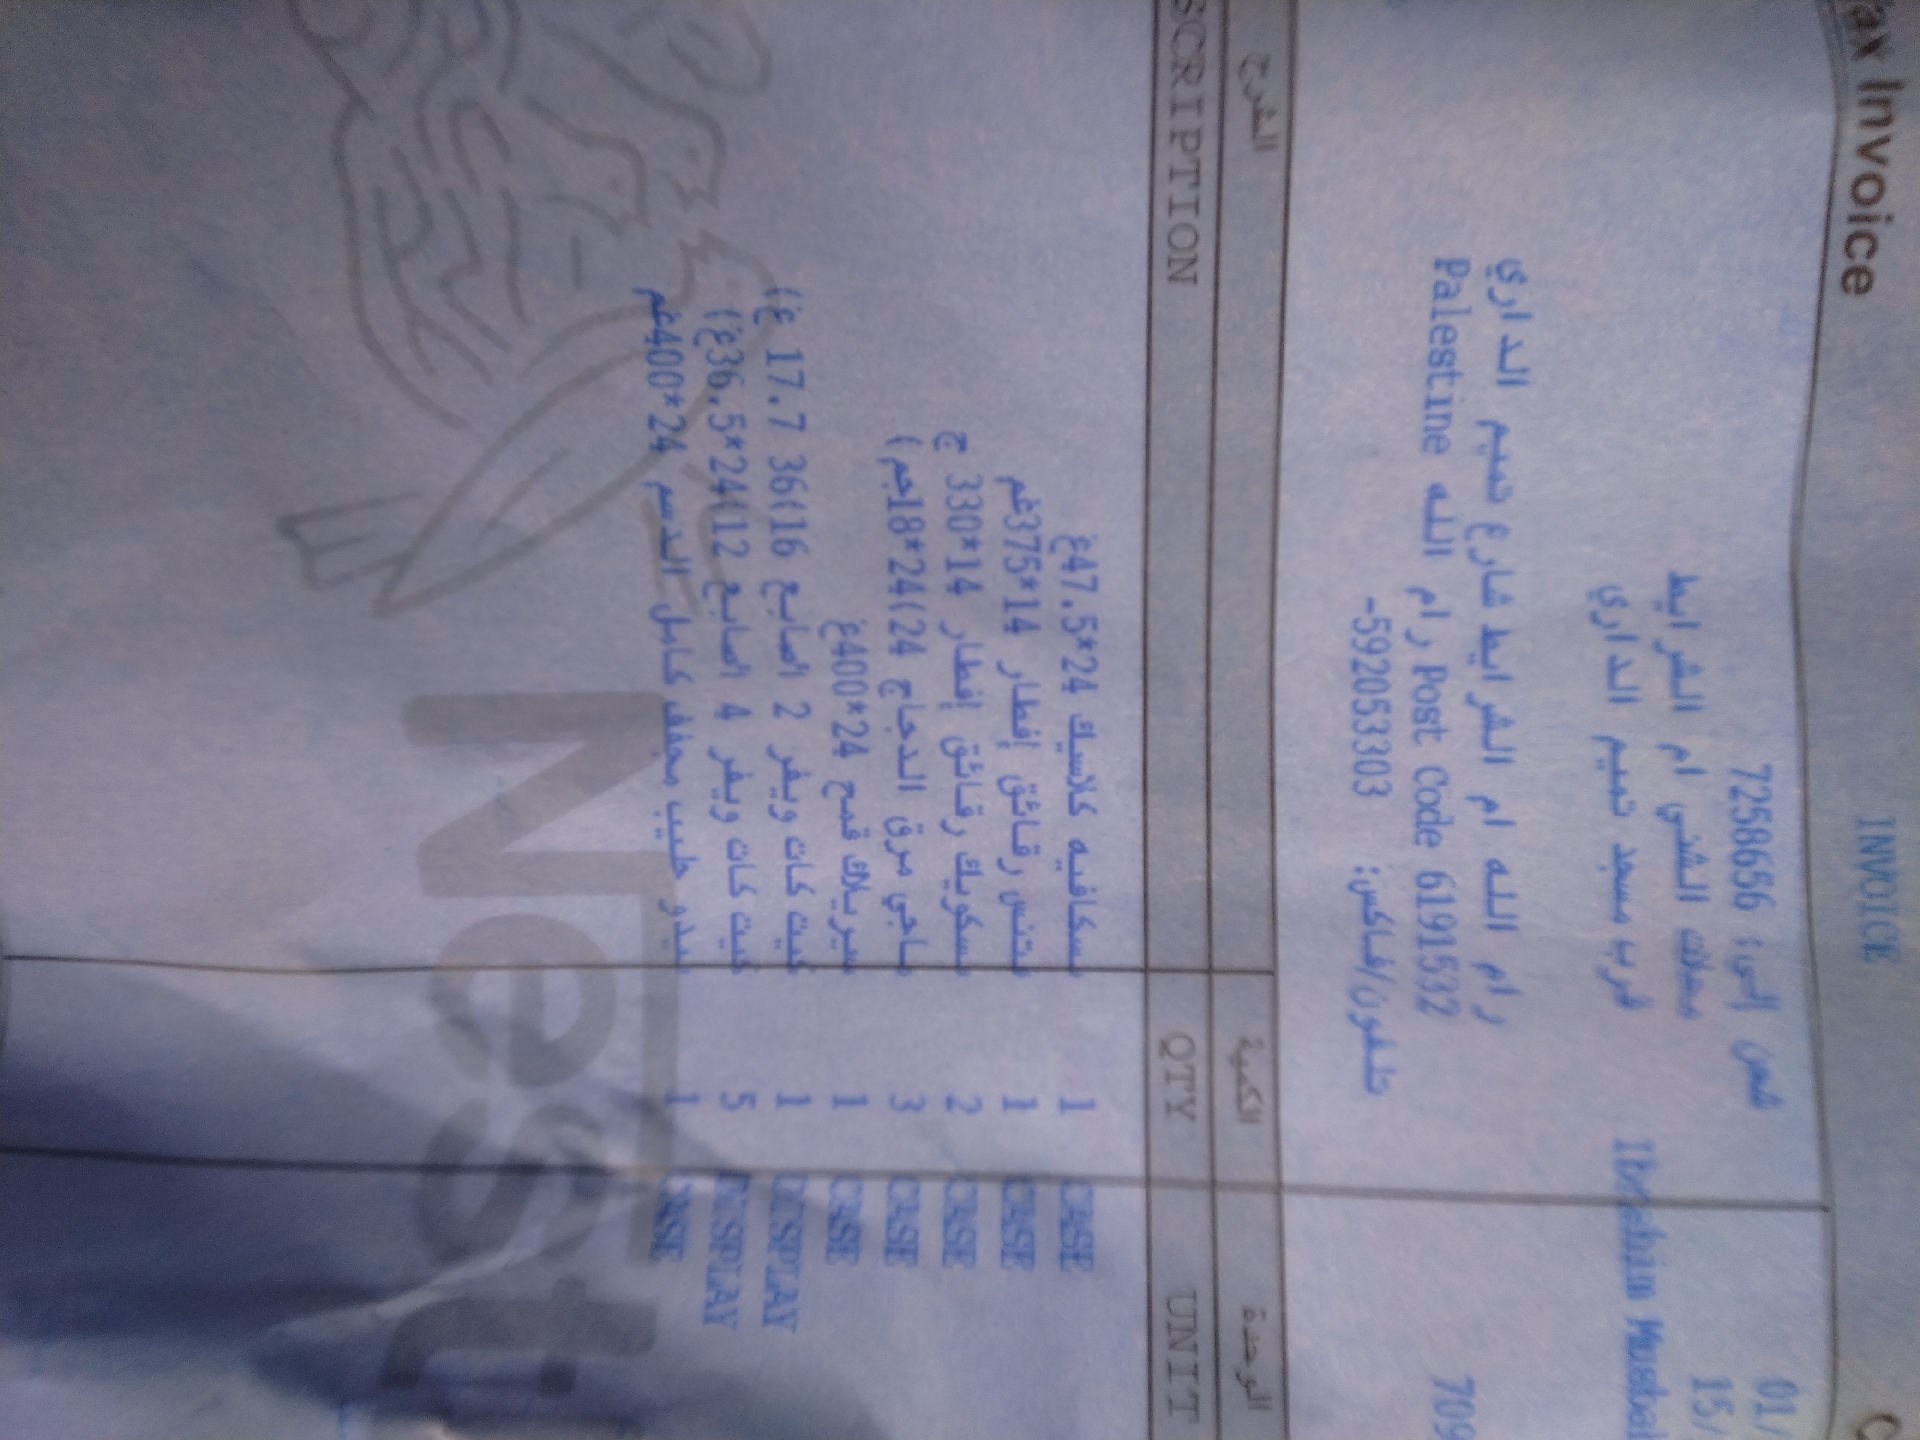 ax Invoice
INVOICE
شحن إلى: 72586656
01/
محلات الشني ام الشرايط
15/
قرب مسجد تميم الداري
Ibrahim
رام الله ام الشرايط شارع تميم الداري
Palestine رام الله Post Code 61915332
709
تلفون/فاكس: 592053303-
الشرح الكمية الوحدة
SCRIPTION QTY UNIT
نسكافيه كلاسيك 24*47.5غ 1 CASE
فتنس رقائق إفطار 14*375غم 1 CASE
نسكويك رقائق إفطار 14*330 ج 2 CASE
ماجي مرق الدجاج 24(24*18جم ) 3 CASE
سيريلاك قمح 24*400غ 1 CASE
كيت كات ويفر 2 اصابع 16(36 17.7 غ) 1 DISPLAY
كيت كات ويفر 4 اصابع 12(24*36.5غ) 5 DISPLAY
نيدو حليب مجفف كامل الدسم 24*400غم 1 CASE
Nest